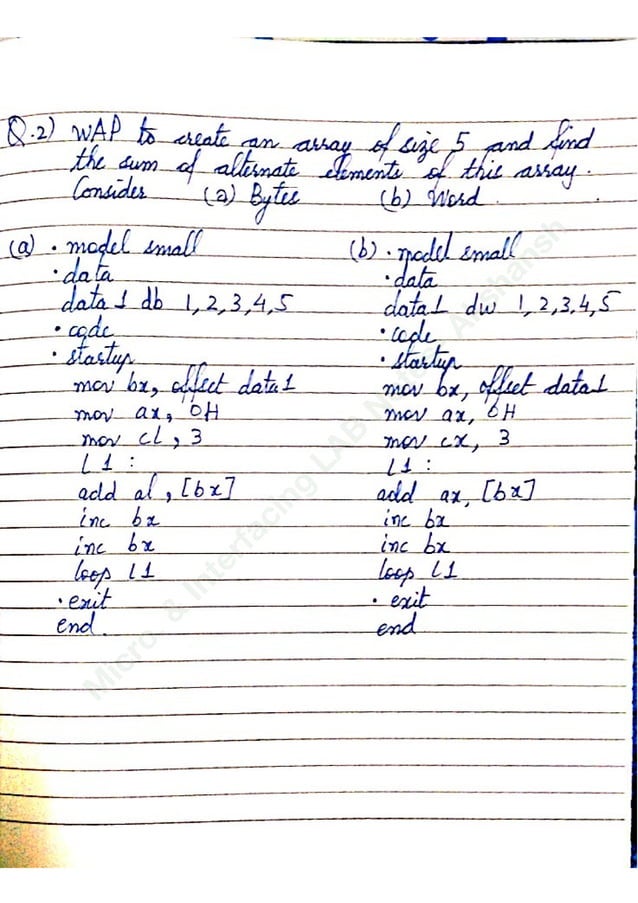 Q.2) WAP to create an array of size 5 and find
the sum of alternate elements of this array.
Consider (a) Bytes (b) Word.
(a) .model small
.data
data1 db 1,2,3,4,5
.code
.startup
mov bx, offset data1
mov ax, 0H
mov cl, 3
L1:
add al, [bx]
inc bx
inc bx
loop L1
.exit
end.
(b) .model small
.data
data1 dw 1,2,3,4,5
.code
.startup
mov bx, offset data1
mov ax, 0H
mov cx, 3
L1:
add ax, [bx]
inc bx
inc bx
loop L1
.exit
end
Micro & Interfacing LAB